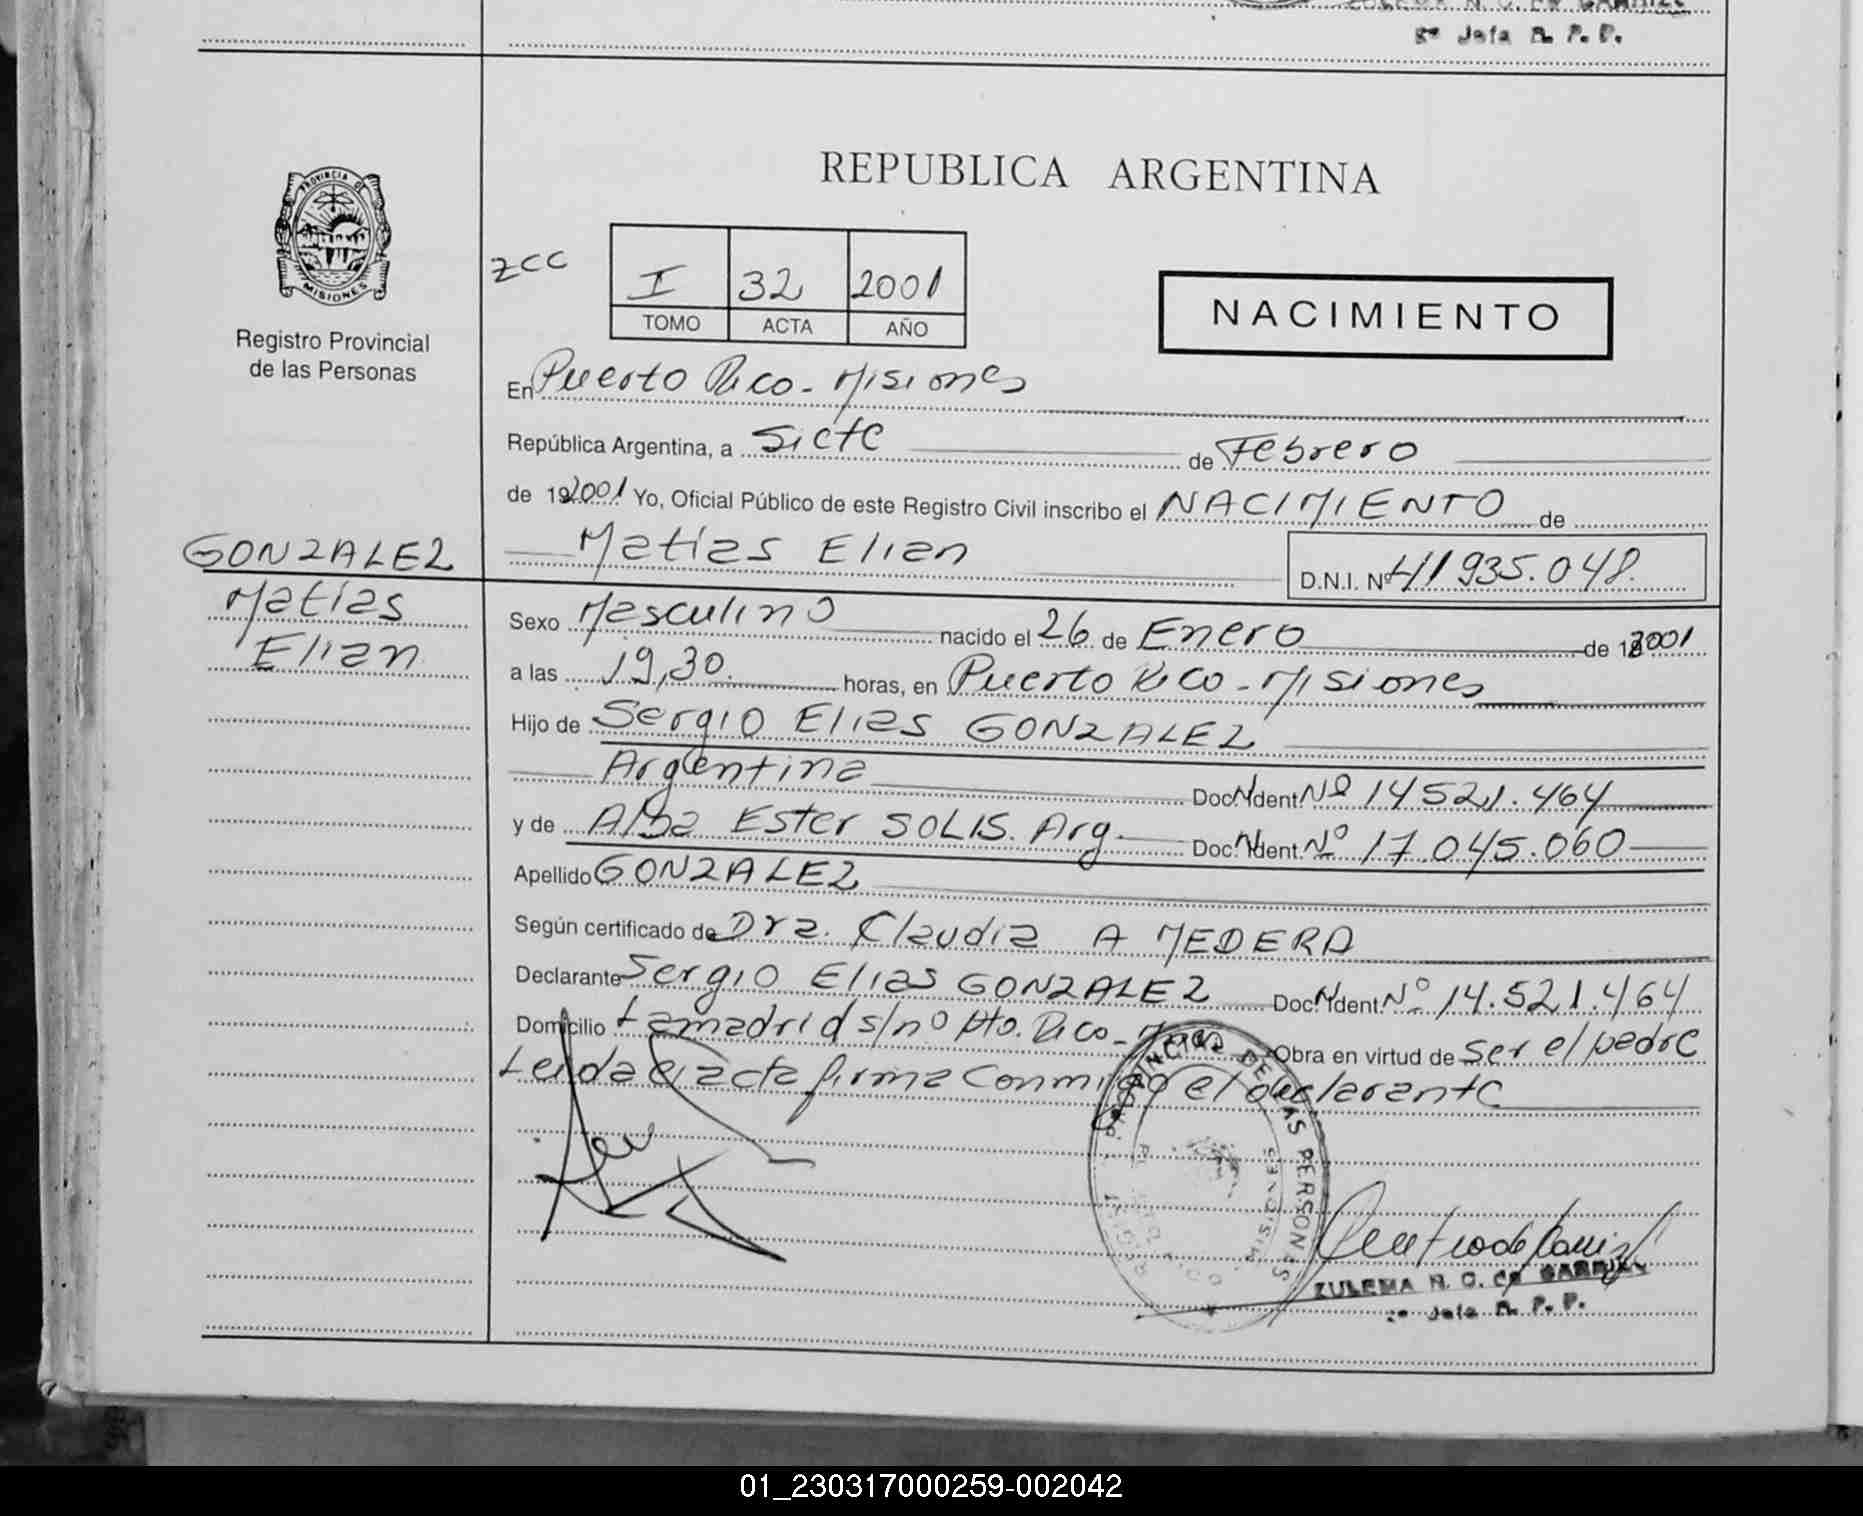 ZULEMA N. C. de
Jefa R. P. P.
PROVINCIA DE
MISIONES
Registro Provincial
de las Personas
REPUBLICA ARGENTINA
zcc
I 32 2001
TOMO ACTA AÑO
NACIMIENTO
En Puerto Rico - Misiones
República Argentina, a Siete de Febrero
de 192001 Yo, Oficial Público de este Registro Civil inscribo el NACIMIENTO de
GONZALEZ
Matías
Elian
Matías Elian D.N.I. Nº 41935.048.
Sexo Masculino nacido el 26 de Enero de 192001
a las 19,30 horas, en Puerto Rico - Misiones
Hijo de Sergio Elias GONZALEZ
Argentina Doc. Ident. Nº 14521.464
y de Alba Ester SOLIS. Arg. Doc. Ident. Nº 17.045.060
Apellido GONZALEZ
Según certificado de Dra. Claudia A MEDERA
Declarante Sergio Elias GONZALEZ Doc. Ident. Nº 14.521.464
Domicilio Lamadrid s/nº Pto. Rico - Obra en virtud de ser el padre
Leida el acta firma conmigo el declarante
PROVINCIAL DE LAS PERSONAS
MISIONES
ZULEMA N. C. de
Jefa R. P. P.
01_230317000259-002042